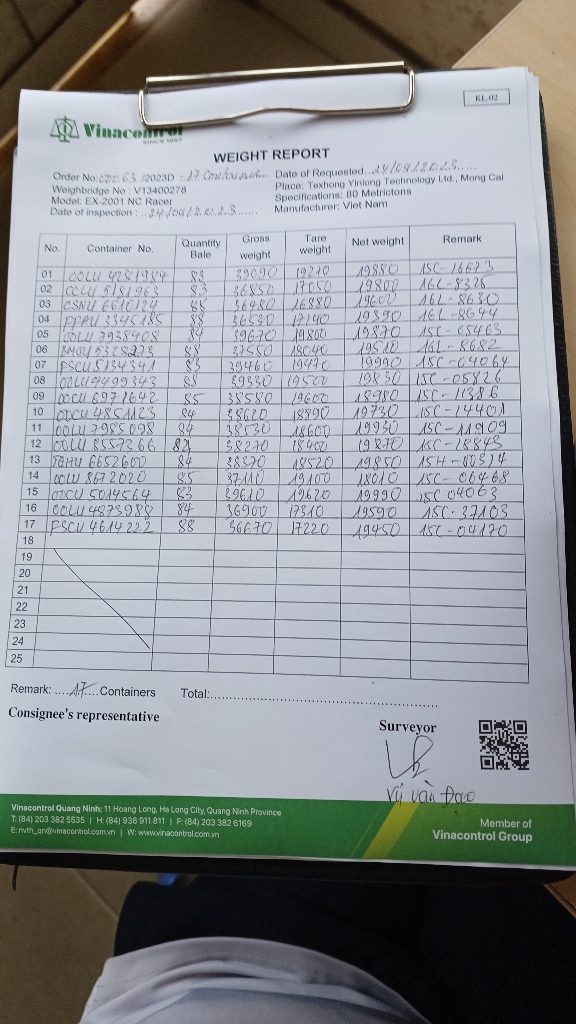 KL.02
Vinacontrol
SINCE 1957
WEIGHT REPORT
Order No: 000.63./2023D - 17 Containers
Date of Requested..24/04/2023.....
Weighbridge No : V13400278
Place: Texhong Yinlong Technology Ltd., Mong Cai
Model: EX-2001 NC Racer
Specifications: 80 Metrictons
Date of inspection : ..24/04/2023......
Manufacturer: Viet Nam
No. Container No. Quantity Bale Gross weight Tare weight Net weight Remark
01 OOLU 4281984 83 39090 19210 19880 15C-16673
02 83 36850 17050 19800 16L-8326
03 88 36480 16880 19600 16L-8630
04 88 36530 17140 19390 16L-8644
05 OOLU 7938408 84 39670 19800 19870 15C-05463
06 88 37550 18040 19510 16L-8682
07 PSCU 5134341 83 39460 19470 19990 15C-04064
08 OOLU 4499343 88 39330 19500 19830 15C-05826
09 OOCU 6971642 85 38580 19600 18980 15C-11386
10 OOCU 4851123 84 38620 18890 19730 15C-14401
11 OOLU 7985098 84 38530 18600 19930 15C-11909
12 OOLU 8557366 82 38270 18400 19870 15C-18843
13 84 38370 18520 19850 15H-00314
14 OOLU 8672020 85 37110 19100 18010 15C-06468
15 OOCU 5014564 83 39610 19620 19990 15C 04063
16 OOLU 4873988 84 36900 17310 19590 15C-37103
17 PSCU 4614222 88 36670 17220 19450 15C-04170
18
19
20
21
22
23
24
25
Remark: ....17....Containers Total:..............................
Consignee's representative
Surveyor
Vũ Văn Đạo
Vinacontrol Quang Ninh: 11 Hoang Long, Ha Long City, Quang Ninh Province
T: (84) 203 382 5535 | H: (84) 936 911 811 | F: (84) 203 382 6169
E: nvth_qn@vinacontrol.com.vn | W: www.vinacontrol.com.vn
Member of
Vinacontrol Group